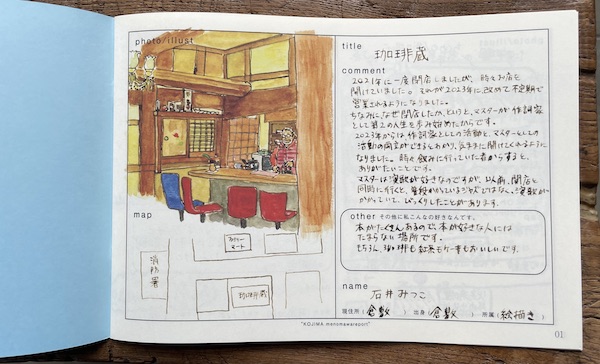 photo/illust
title
珈琲蔵
comment
2021年に一度閉店しましたが、時々お店を
開けていました。それが2023年に改めて不定期で
営業されるようになりました。
ちなみになぜ閉店したか、というと、マスターが作詞家
として第2の人生を歩み始めたからです。
2023年からは作詞家としての活動と、マスターとしての
活動の両立ができるとわかり、気ままに開けてくれるように
なりました。時々飲みに行っていた者からすると、
ありがたいことです。
マスターは演歌が好きなのですが、以前、開店と
同時に行くと、普段かかっているジャズではなく、演歌が
かかっていて、びっくりしたことがあります。
map
ファミリーマート
消防署
珈琲蔵
other その他に私こんなの好きなんです。
本がたくさんあるので、本が好きな人には
たまらない場所です。
もちろん、珈琲も紅茶もケーキもおいしいです。
name
石井みつこ
現住所（倉敷） 出身（倉敷） 所属（絵描き）
"KOJIMA menomawareport"
01